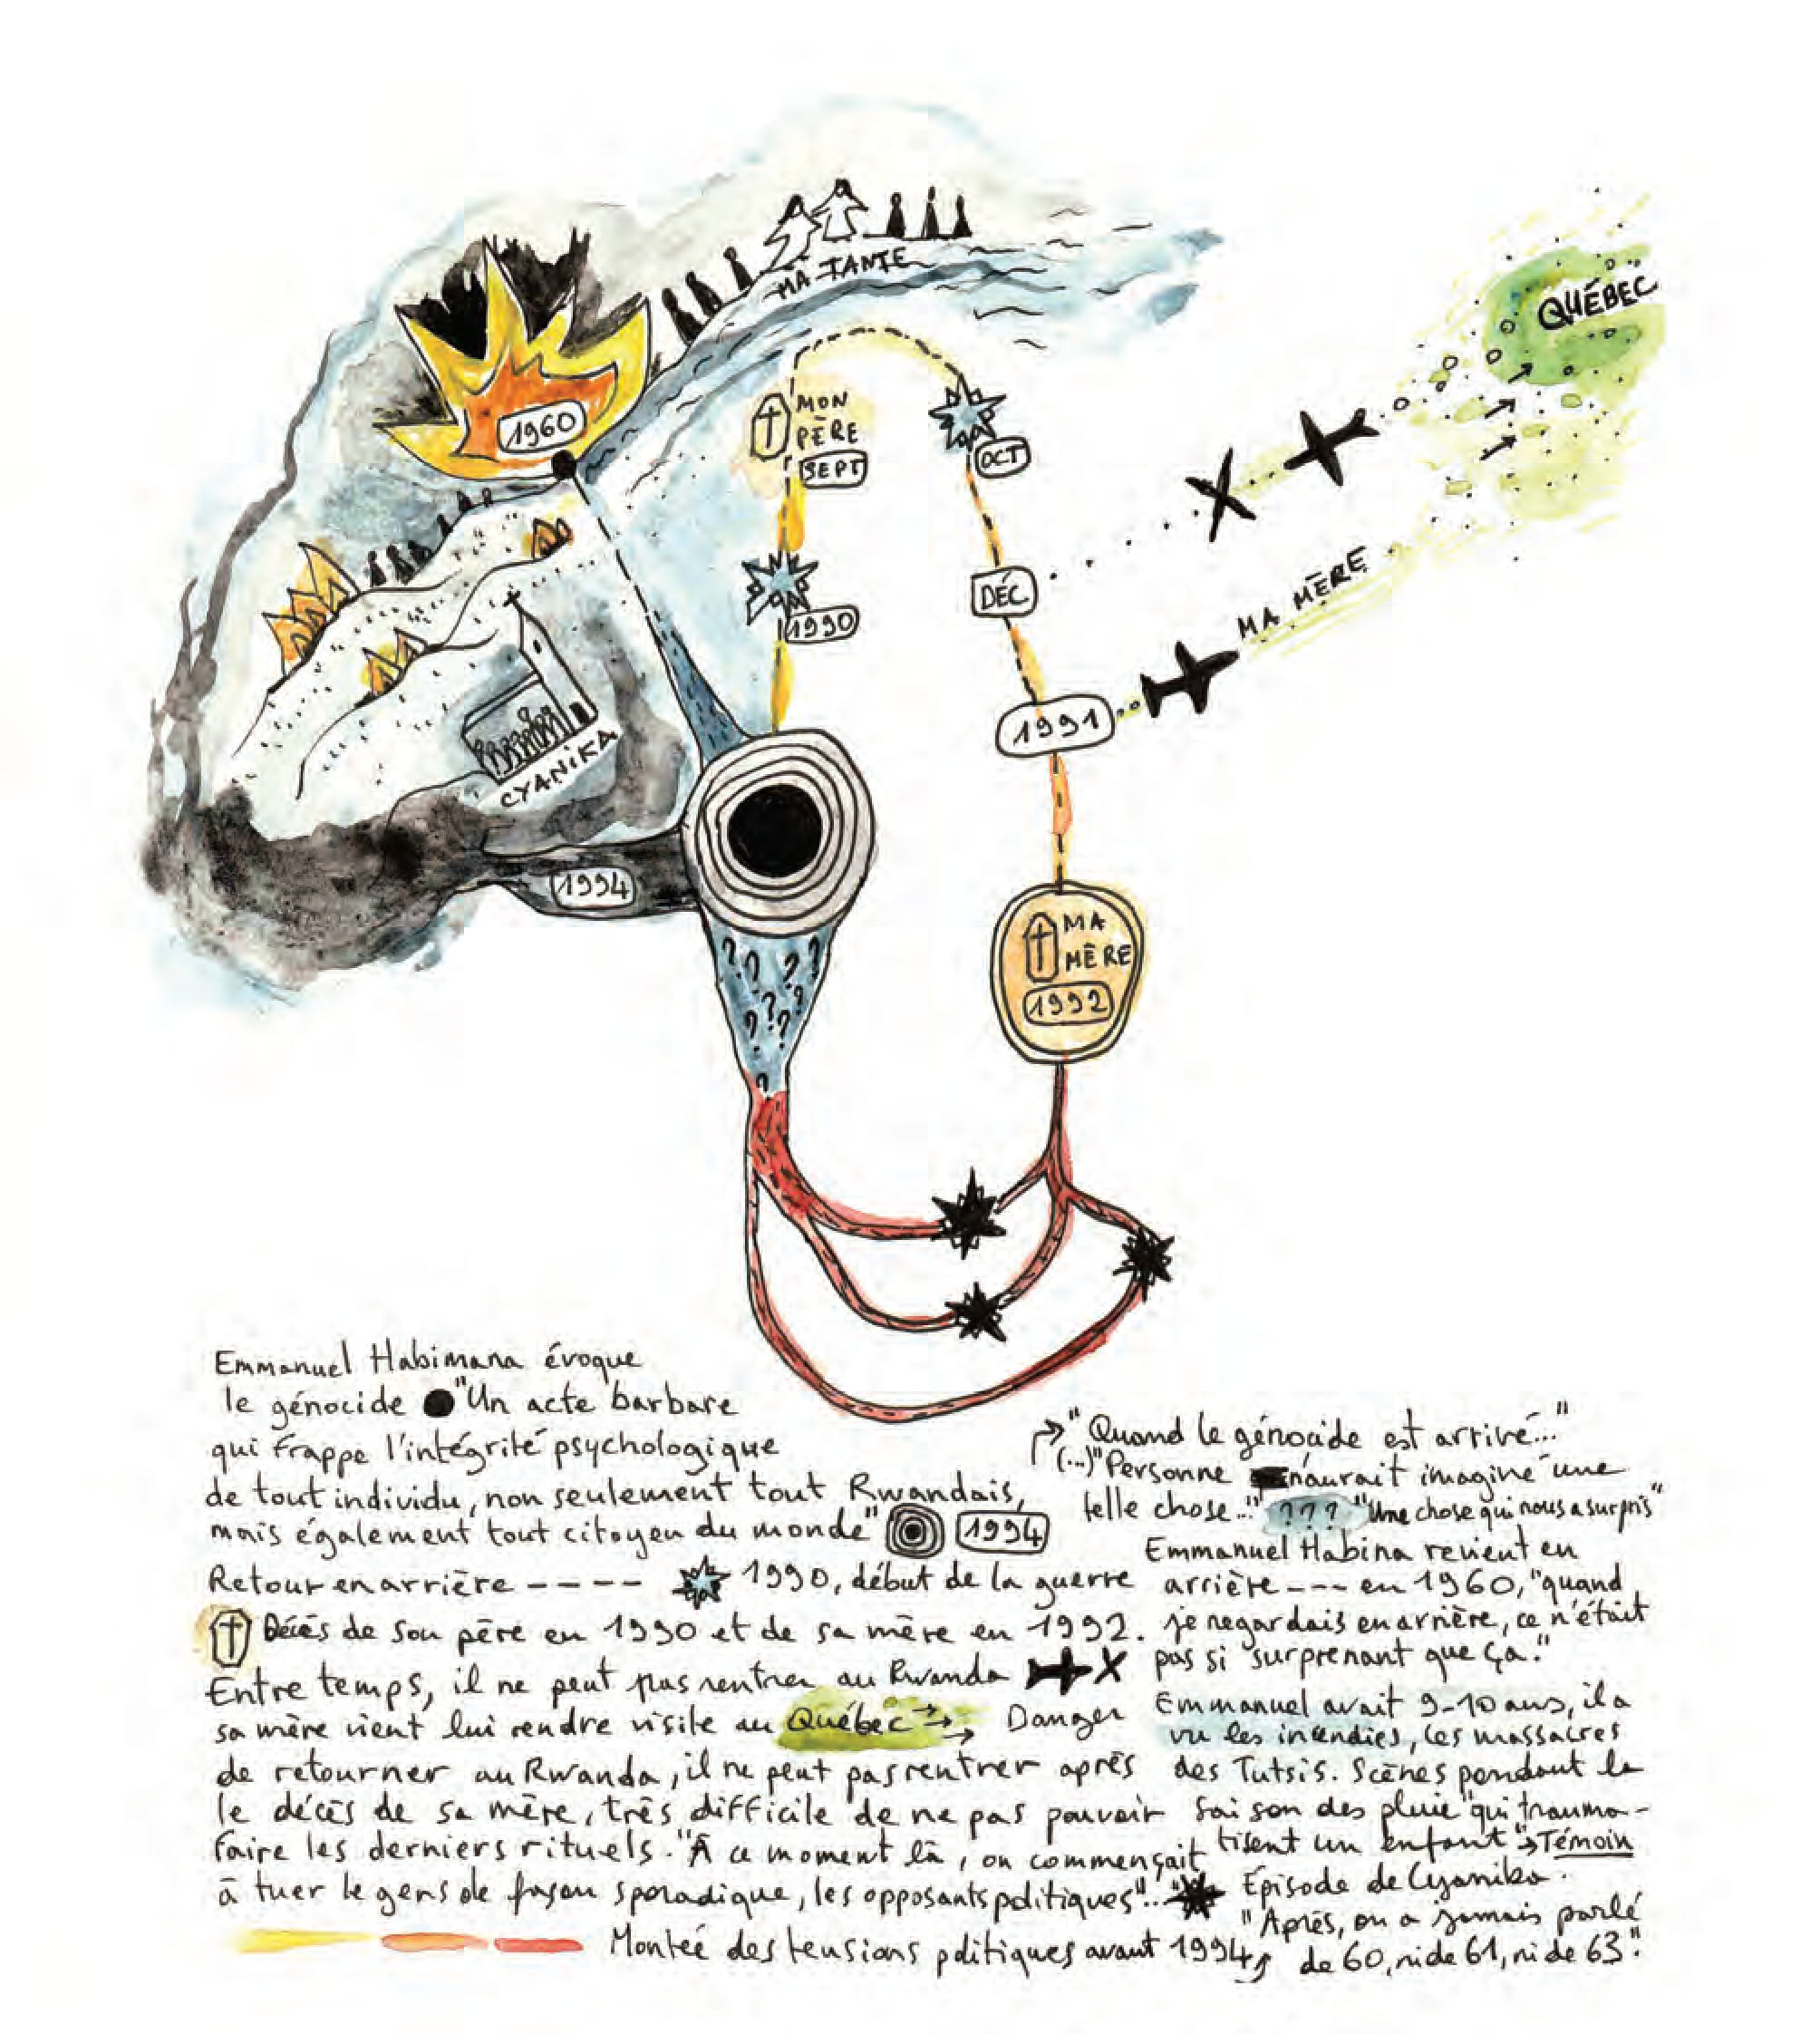 QUÉBEC
MA TANTE
1960
MON
PÈRE
SEPT
OCT
1990
DÉC
MA MÈRE
1991
CYANIKA
1994
MA
MÈRE
1992
? ? ? ? ? ? ? ? ?
Emmanuel Habimana évoque
le génocide "Un acte barbare
qui frappe l'intégrité psychologique
de tout individu, non seulement tout Rwandais,
mais également tout citoyen du monde" 1994
Retour en arrière ---- 1990, début de la guerre
Décès de son père en 1990 et de sa mère en 1992.
Entre temps, il ne peut pas rentrer au Rwanda X
sa mère vient lui rendre visite au Québec → Danger
de retourner au Rwanda, il ne peut pas rentrer après
le décès de sa mère, très difficile de ne pas pouvoir
faire les derniers rituels. "À ce moment là, on commençait
à tuer le gens de façon sporadique, les opposants politiques"...
Montée des tensions politiques avant 1994
"Quand le génocide est arrivé..."
(...) "Personne n'aurait imaginé une
telle chose..." ??? "Une chose qui nous a surpris"
Emmanuel Habina revient en
arrière --- en 1960, "quand
je regardais en arrière, ce n'était
pas si surprenant que ça."
Emmanuel avait 9-10 ans, il a
vu les incendies, les massacres
des Tutsis. Scènes pendant la
saison des pluie "qui trauma-
tisent un enfant" → Témoin
Épisode de Cyanika.
"Après, on a jamais parlé
de 60, ni de 61, ni de 63".